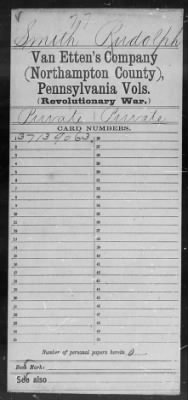 Smith Rudolph
Van Etten's Company
(Northampton County),
Pennsylvania Vols.
(Revolutionary War.)
Private Private
CARD NUMBERS.
37139063
Number of personal papers herein 0
Book Mark:
See also